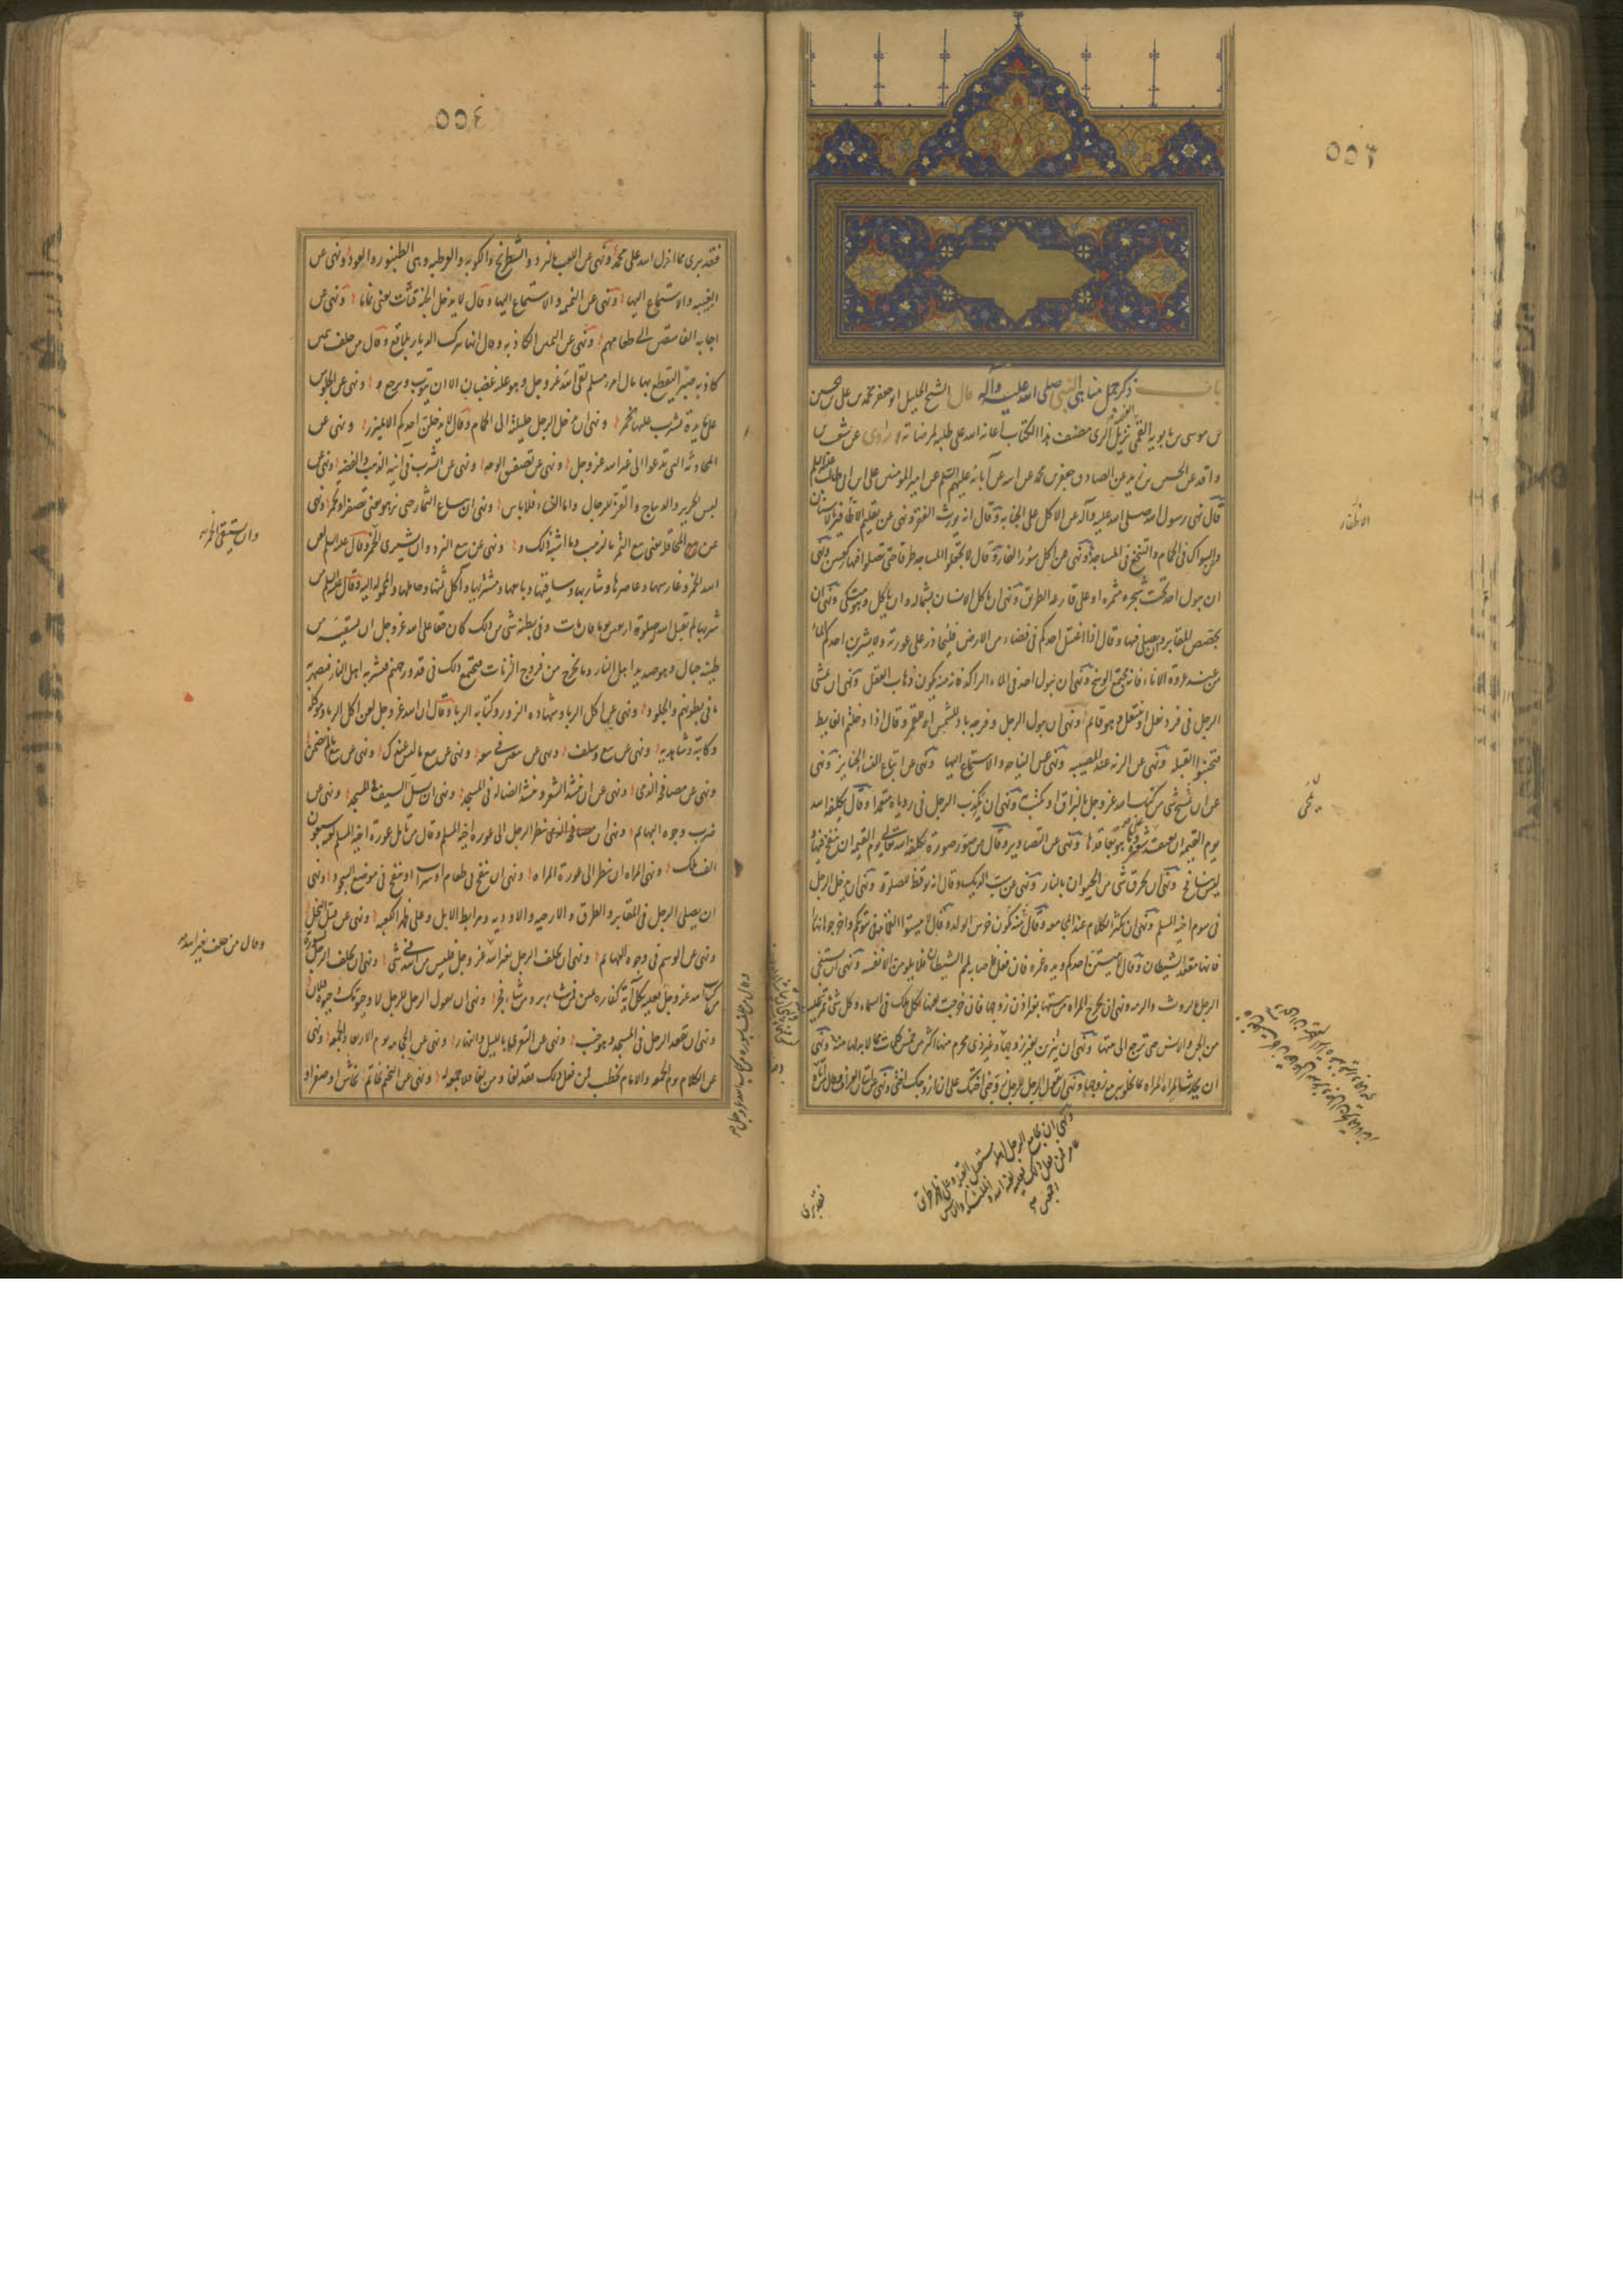 باب ذكر جمل من مناهى النبى صلى الله عليه وآله قال الشيخ الجليل ابو جعفر محمد بن على بن الحسين
بن موسى بن بابويه القمى نزيل الرى مصنف هذا الكتاب اعانه الله على طلبه لمرضاته روى عن شعيب بن
واقد عن الحسين بن زيد عن الصادق جعفر بن محمد عن ابيه عن آبائه عليهم السلم عن امير المومنين على بن ابى طالب عليه السلم
قال نهى رسول الله صلى الله عليه وآله عن الاكل على الجنابة وقال انه يورث الفقر ونهى عن تقليم الاظافير بالاسنان
وعن السواك فى الحمام والتنخع فى المساجد ونهى عن اكل سؤر الفارة وقال لا تجعلوا المساجد طرقا حتى تصلوا فيها ركعتين ونهى
ان يبول احد تحت شجرة مثمرة او على قارعة الطريق ونهى ان ياكل الانسان بشماله وان ياكل وهو متكى ونهى ان
تجصص المقابر ويصلى فيها وقال اذا اغتسل احدكم فى فضاء من الارض فليحاذر على عورته ولا يشربن احدكم الماء
من عند عروة الاناء فانه مجتمع الوسخ ونهى ان يبول احد فى الماء الراكد فانه منه يكون ذهاب العقل ونهى ان يمشى
الرجل فى فرد نعل او يتنعل وهو قائم ونهى ان يبول الرجل وفرجه باد للشمس او للقمر وقال اذا دخلتم الغايط
فتجنبوا القبلة ونهى عن الرنة عند المصيبة ونهى عن النياحة والاستماع اليها ونهى عن اتباع النساء الجنايز ونهى
عن ان يمحى شى من كتاب الله عز وجل بالبزاق او يكتب به ونهى ان يكذب الرجل فى روياه متعمدا وقال يكلفه الله
يوم القيمة ان يعقد شعيرة وما هو بعاقدها ونهى عن التصاوير وقال من صور صورة كلفه الله تعالى يوم القيمة ان ينفخ فيها و
ليس بنافخ ونهى ان يحرق شى من الحيوان بالنار ونهى عن سب الديك وقال انه يوقظ للصلوة ونهى ان يدخل الرجل
فى سوم اخيه المسلم ونهى ان يكثر الكلام عند المجامعة وقال منه يكون خرس الولد وقال لا تبيتوا القمامة فى بيوتكم واخرجوها نهارا
فانها مقعد الشيطان وقال لا يبيتن احدكم ويده غمرة فان فعل فاصابه لمم الشيطان فلا يلومن الا نفسه ونهى ان يستنجى
الرجل بالروث والرمة ونهى ان تخرج المراة من بيتها بغير اذن زوجها فان خرجت لعنها كل ملك فى السماء وكل شى تمر عليه
من الجن والانس حتى ترجع الى بيتها ونهى ان تتزين لغير زوجها وغير ذى محرم منها اكثر من خمس كلمات مما لا بد لها منه ونهى
ان تحدث المراة المراة بما تخلو به مع زوجها ونهى ان يقول الرجل للرجل زوجنى اختك على ان ازوجك اختى ونهى عن اتيان العراف وقال من اتاه
الاظفار
ونهى ان يجامع الرجل اهله مستقبل القبلة وعلى ظهر طريق
عامر فمن فعل ذلك فعليه لعنة الله والملئكة والناس
اجمعين
فقد برى
فقد برى مما انزل الله على محمد ونهى عن اللعب بالنرد والشطرنج والكوبة والعرطبة وهى الطنبور والعود ونهى عن
الغيبة والاستماع اليها ونهى عن النميمة والاستماع اليها وقال لا يدخل الجنة قتات يعنى نماما ونهى عن
اجابة الفاسقين الى طعامهم ونهى عن اليمين الكاذبة وقال انها تترك الديار بلاقع وقال من حلف بيمين
كاذبة صبرا ليقطع بها مال امرء مسلم لقى الله عز وجل وهو عليه غضبان الا ان يتوب ويرجع ونهى عن الجلوس
على مائدة يشرب عليها الخمر ونهى ان يدخل الرجل حليلته الى الحمام وقال لا يدخلن احدكم الا بميزر ونهى عن
المحادثة التى تدعوا الى غير الله عز وجل ونهى عن تصفيق الوجه ونهى عن الشرب فى انية الذهب والفضة ونهى عن
لبس الحرير والديباج والقز للرجال واما النساء فلا باس ونهى ان يباع الثمار حتى تزهو يعنى تصفر او تحمر ونهى
عن بيع المحاقلة يعنى بيع التمر بالرطب وما اشبه ذلك ونهى عن بيع النرد وان يشترى الخمر وقال عليه السلم لعن
الله الخمر وغارسها وعاصرها وشاربها وساقيها وبايعها ومشتريها وآكل ثمنها وحاملها والمحمولة اليه وقال عليه السلم من
شربها لم تقبل له صلوة اربعين يوما فان مات وفى بطنه شى من ذلك كان حقا على الله عز وجل ان يسقيه من
طينة خبال وهو صديد اهل النار وما يخرج من فروج الزناة فيجتمع ذلك فى قدور جهنم فيشربه اهل النار فيصهر به
ما فى بطونهم والجلود ونهى عن اكل الربا وشهادة الزور وكتابة الربا وقال ان الله عز وجل لعن اكل الربا وموكله
وكاتبه وشاهديه ونهى عن بيع وسلف ونهى عن بيعين فى بيع ونهى عن بيع ما ليس عندك ونهى عن بيع ما لم يضمن
ونهى عن مصافحة الذمى ونهى عن ان ينشد الشعر او ينشد الضالة فى المسجد ونهى ان يسل السيف فى المسجد ونهى عن
ضرب وجوه البهايم ونهى ان ينظر الرجل الى عورة اخيه المسلم وقال من تامل عورة اخيه المسلم لعنه سبعون
الف ملك ونهى المراة ان تنظر الى عورة المراة ونهى ان ينفخ فى طعام او شراب او ينفخ فى موضع السجود ونهى
ان يصلى الرجل فى المقابر والطرق والارحية والاودية ومرابط الابل وعلى ظهر الكعبة ونهى عن قتل النحل
ونهى عن الوسم فى وجوه البهايم ونهى ان يحلف الرجل بغير الله عز وجل فليس من الله فى شى ونهى ان يحلف الرجل بسورة
من كتاب الله عز وجل فعليه بكل آية كفارة يمين فمن شاء بر ومن شاء فجر ونهى ان يقول الرجل للرجل لا وحيوتك وحيوة فلان
ونهى ان يقعد الرجل فى المسجد وهو جنب ونهى عن التعرى بالليل والنهار ونهى عن الحجامة يوم الاربعا والجمعة ونهى
عن الكلام يوم الجمعة والامام يخطب فمن فعل ذلك فقد لغا ومن لغا فلا جمعة له ونهى عن التختم بخاتم نحاس او صفر او
وان يستقى الخمر
وقال من حلف بغير الله
وقال من حلف بسورة من كتاب الله عز وجل
٥٥٤